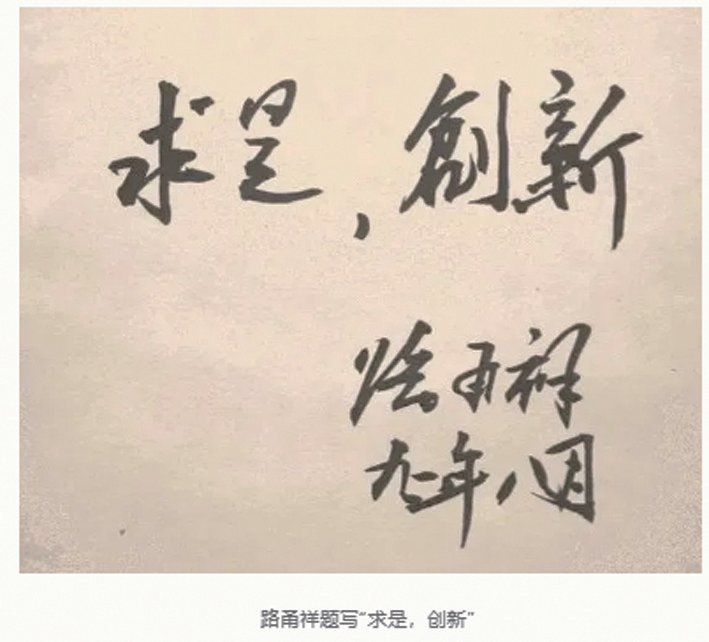 求是，創新
路甬祥
九 年八月
路甬祥题写“求是，创新”